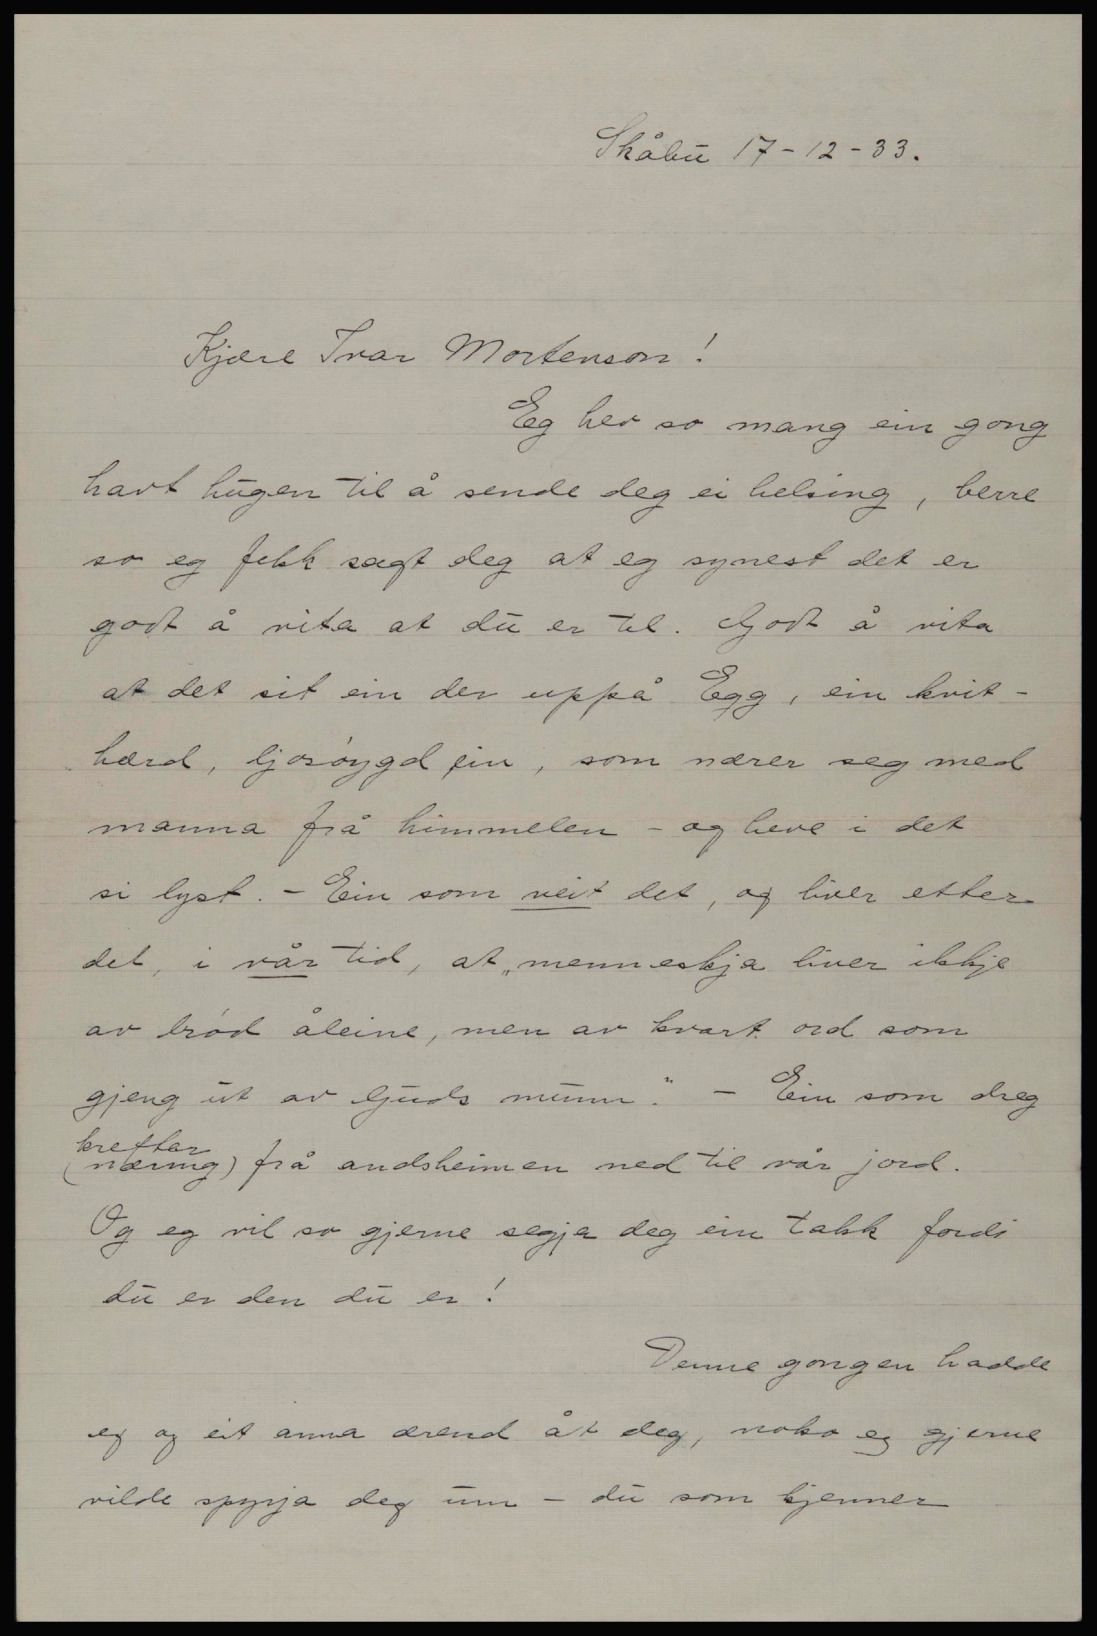 Skåbu 17-12-33.
Kjære Ivar Mortenson!
Eg hev so mang ein gong
havt hugen til å sende deg ei helsing, berre
so eg fekk sagt deg at eg synest det er
godt å vita at du er til. Godt å vita
at det sit ein der uppå Egg, ein kvit-
hærd, ljosøygd ein, som nærer seg med
manna frå himmelen - og heve i det
si lyst. - Ein som veit det, og liver etter
det, i vår tid, at „menneskja liver ikkje
av brød åleine, men av kvart ord som
gjeng ut av Guds munn." - Ein som dreg
krefter
(næring) frå andsheimen ned til vår jord.
Og eg vil so gjerne segja deg ein takk fordi
du er den du er!
Denne gongen hadde
eg og eit anna ærend åt deg, noko eg gjerne
vilde spyrja deg um - du som kjenner